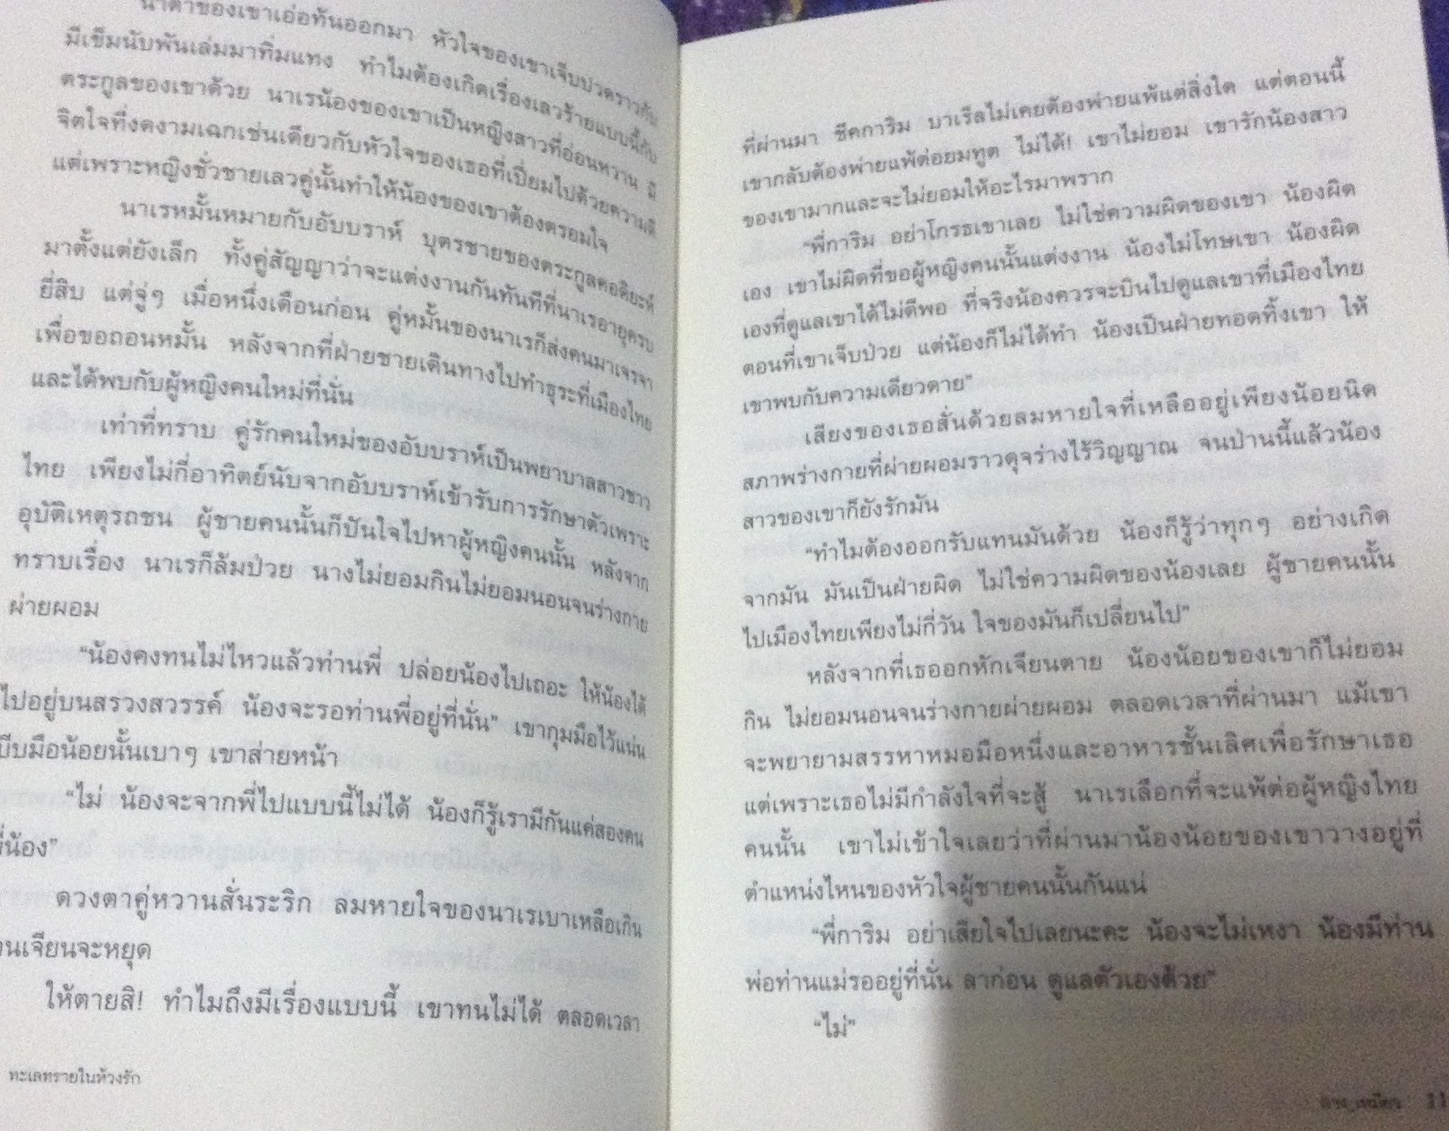 น้ำตาของเขาเอ่อท้นออกมา หัวใจของเขาเจ็บปวดราวกับ
มีเข็มนับพันเล่มมาทิ่มแทง ทำไมต้องเกิดเรื่องเลวร้ายแบบนี้กับ
ตระกูลของเขาด้วย นาเรน้องของเขาเป็นหญิงสาวที่อ่อนหวาน มี
จิตใจที่งดงามเฉกเช่นเดียวกับหัวใจของเธอที่เปี่ยมไปด้วยความดี
แต่เพราะหญิงชั่วชายเลวคู่นั้นทำให้น้องของเขาต้องตรอมใจ
นาเรหมั้นหมายกับอับบราห์ บุตรชายของตระกูลคอดิยะห์
มาตั้งแต่ยังเล็ก ทั้งคู่สัญญาว่าจะแต่งงานกันทันทีที่นาเรอายุครบ
ยี่สิบ แต่จู่ๆ เมื่อหนึ่งเดือนก่อน คู่หมั้นของนาเรก็ส่งคนมาเจรจา
เพื่อขอถอนหมั้น หลังจากที่ฝ่ายชายเดินทางไปทำธุระที่เมืองไทย
และได้พบกับผู้หญิงคนใหม่ที่นั่น
เท่าที่ทราบ คู่รักคนใหม่ของอับบราห์เป็นพยาบาลสาวชาว
ไทย เพียงไม่กี่อาทิตย์นับจากอับบราห์เข้ารับการรักษาตัวเพราะ
อุบัติเหตุรถชน ผู้ชายคนนั้นก็ปันใจไปหาผู้หญิงคนนั้น หลังจาก
ทราบเรื่อง นาเรก็ล้มป่วย นางไม่ยอมกินไม่ยอมนอนจนร่างกาย
ผ่ายผอม
“น้องคงทนไม่ไหวแล้วท่านพี่ ปล่อยน้องไปเถอะ ให้น้องได้
ไปอยู่บนสรวงสวรรค์ น้องจะรอท่านพี่อยู่ที่นั่น” เขากุมมือไว้แน่น
บีบมือน้อยนั้นเบาๆ เขาส่ายหน้า
“ไม่ น้องจะจากพี่ไปแบบนี้ไม่ได้ น้องก็รู้เรามีกันแค่สองคน
พี่น้อง”
ดวงตาคู่หวานสั่นระริก ลมหายใจของนาเรเบาเหลือเกิน
จนเจียนจะหยุด
ให้ตายสิ! ทำไมถึงมีเรื่องแบบนี้ เขาทนไม่ได้ ตลอดเวลา
ทะเลทรายในห้วงรัก
ที่ผ่านมา ชีคการิม บาเรืลไม่เคยต้องพ่ายแพ้แต่สิ่งใด แต่ตอนนี้
เขากลับต้องพ่ายแพ้ต่อยมทูต ไม่ได้! เขาไม่ยอม เขารักน้องสาว
ของเขามากและจะไม่ยอมให้อะไรมาพราก
“พี่การิม อย่าโกรธเขาเลย ไม่ใช่ความผิดของเขา น้องผิด
เอง เขาไม่ผิดที่ขอผู้หญิงคนนั้นแต่งงาน น้องไม่โทษเขา น้องผิด
เองที่ดูแลเขาได้ไม่ดีพอ ที่จริงน้องควรจะบินไปดูแลเขาที่เมืองไทย
ตอนที่เขาเจ็บป่วย แต่น้องก็ไม่ได้ทำ น้องเป็นฝ่ายทอดทิ้งเขา ให้
เขาพบกับความเดียวดาย”
เสียงของเธอสั่นด้วยลมหายใจที่เหลืออยู่เพียงน้อยนิด
สภาพร่างกายที่ผ่ายผอมราวดุจร่างไร้วิญญาณ จนป่านนี้แล้วน้อง
สาวของเขาก็ยังรักมัน
“ทำไมต้องออกรับแทนมันด้วย น้องก็รู้ว่าทุกๆ อย่างเกิด
จากมัน มันเป็นฝ่ายผิด ไม่ใช่ความผิดของน้องเลย ผู้ชายคนนั้น
ไปเมืองไทยเพียงไม่กี่วัน ใจของมันก็เปลี่ยนไป”
หลังจากที่เธออกหักเจียนตาย น้องน้อยของเขาก็ไม่ยอม
กิน ไม่ยอมนอนจนร่างกายผ่ายผอม ตลอดเวลาที่ผ่านมา แม้เขา
จะพยายามสรรหาหมอมือหนึ่งและอาหารชั้นเลิศเพื่อรักษาเธอ
แต่เพราะเธอไม่มีกำลังใจที่จะสู้ นาเรเลือกที่จะแพ้ต่อผู้หญิงไทย
คนนั้น เขาไม่เข้าใจเลยว่าที่ผ่านมาน้องน้อยของเขาวางอยู่ที่
ตำแหน่งไหนของหัวใจผู้ชายคนนั้นกันแน่
“พี่การิม อย่าเสียใจไปเลยนะคะ น้องจะไม่เหงา น้องมีท่าน
พ่อท่านแม่รออยู่ที่นั่น ลาก่อน ดูแลตัวเองด้วย”
“ไม่”
11